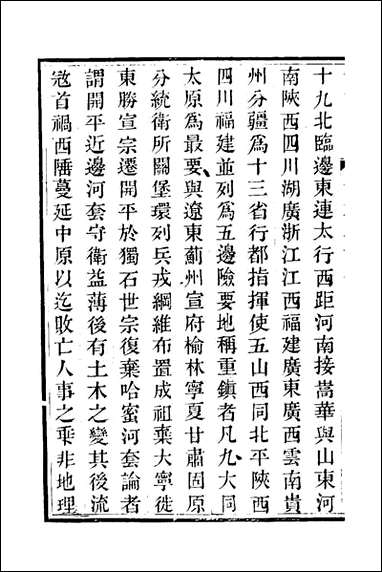 十九北臨邊東連太行西距河南接嵩華與山東河
南陝西四川湖廣浙江江西福建廣東廣西雲南貴
州分疆爲十三省行都指揮使五山西同北平陝西
四川福建並列爲五邊險要地稱重鎮者凡九大同
太原爲最要與遼東薊州宣府榆林寧夏甘肅固原
分統衛所關堡環列兵戎綱維布置成祖棄大寧徙
東勝宣宗遷開平於獨石世宗復棄哈蜜河套論者
謂開平近邊河套守衛益薄後有土木之變其後流
寇首禍西陲蔓延中原以迄敗亡人事之乘非地理